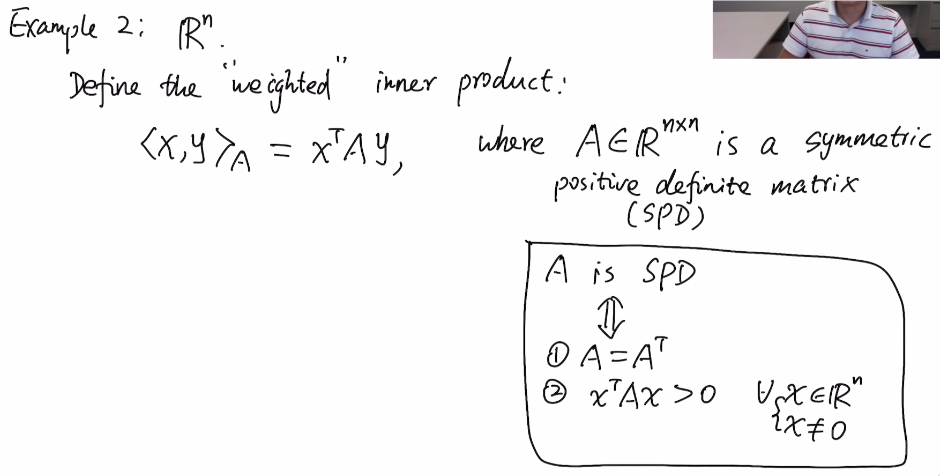 Example 2: ℝⁿ.
Define the "weighted" inner product:
⟨x,y⟩_A = xᵀAy, where A∈ℝⁿˣⁿ is a symmetric
positive definite matrix
(SPD)
A is SPD
⇕
① A=Aᵀ
② xᵀAx >0 ∀ { x∈ℝⁿ
x≠0